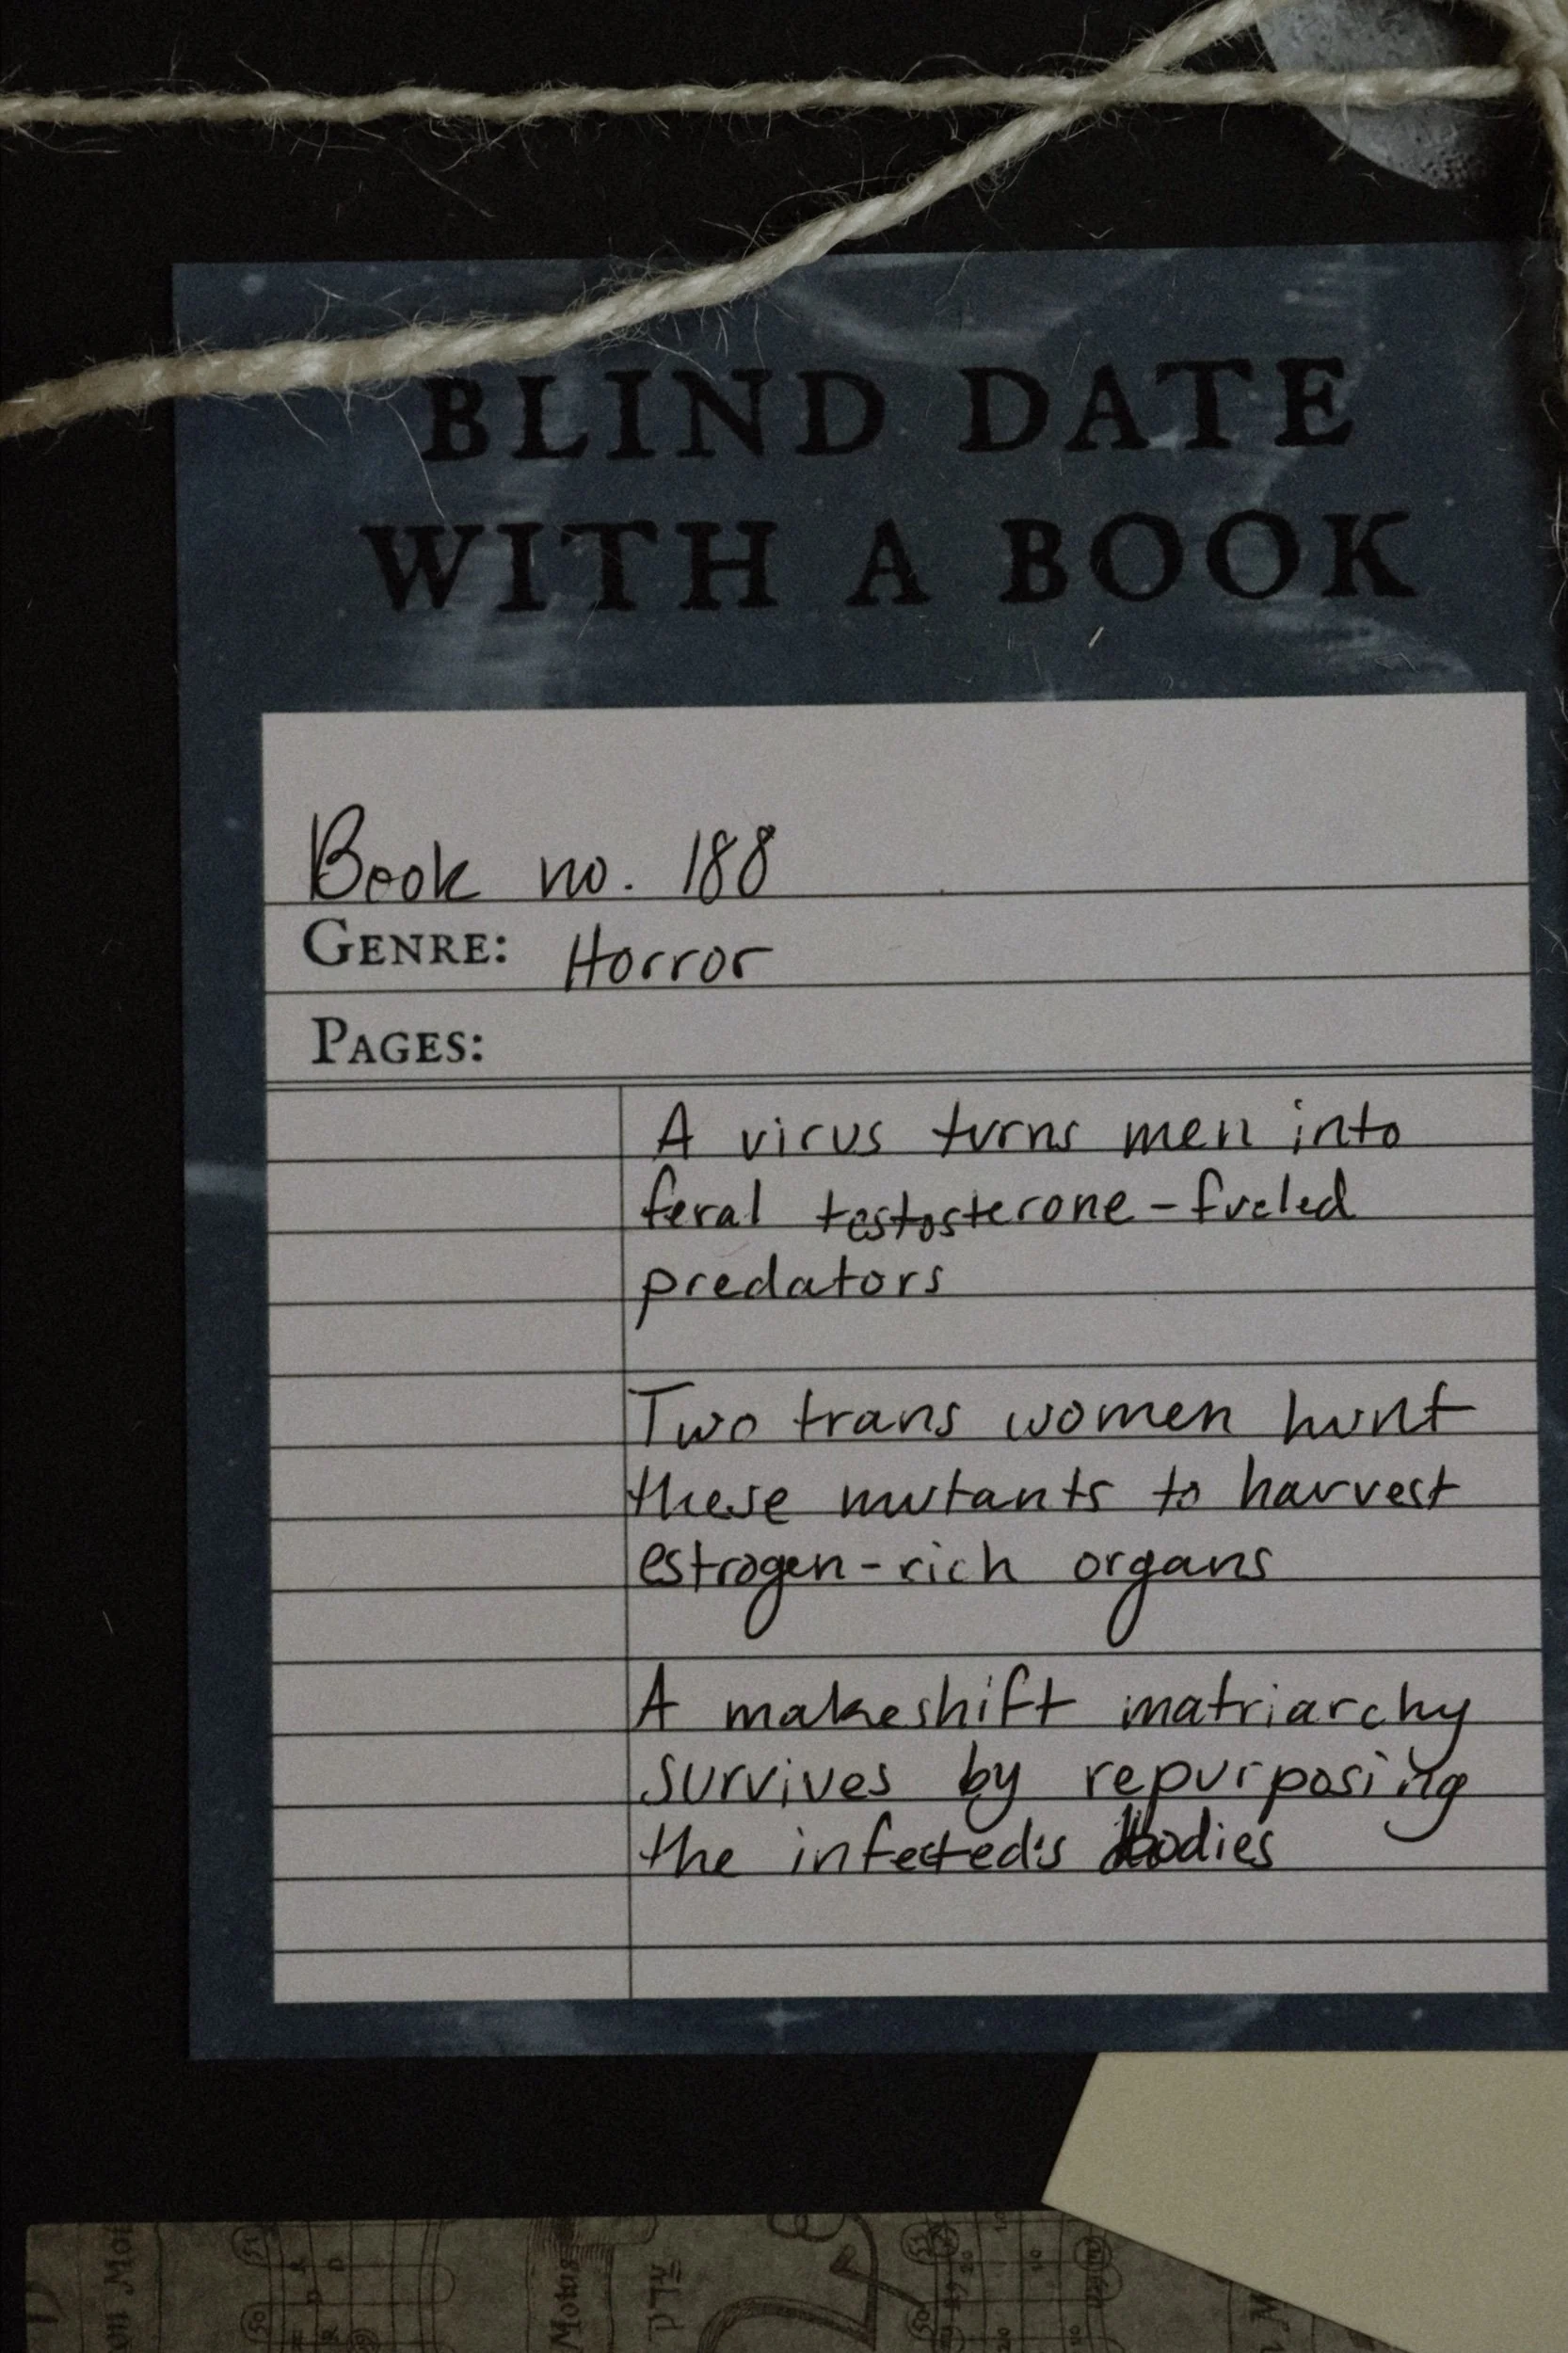 BLIND DATE
WITH A BOOK
Book no. 188
GENRE: Horror
PAGES:
A virus turns men into
feral testosterone-fueled
predators
Two trans women hunt
these mutants to harvest
estrogen-rich organs
A makeshift matriarchy
survives by repurposing
the infected's bodies
Motus